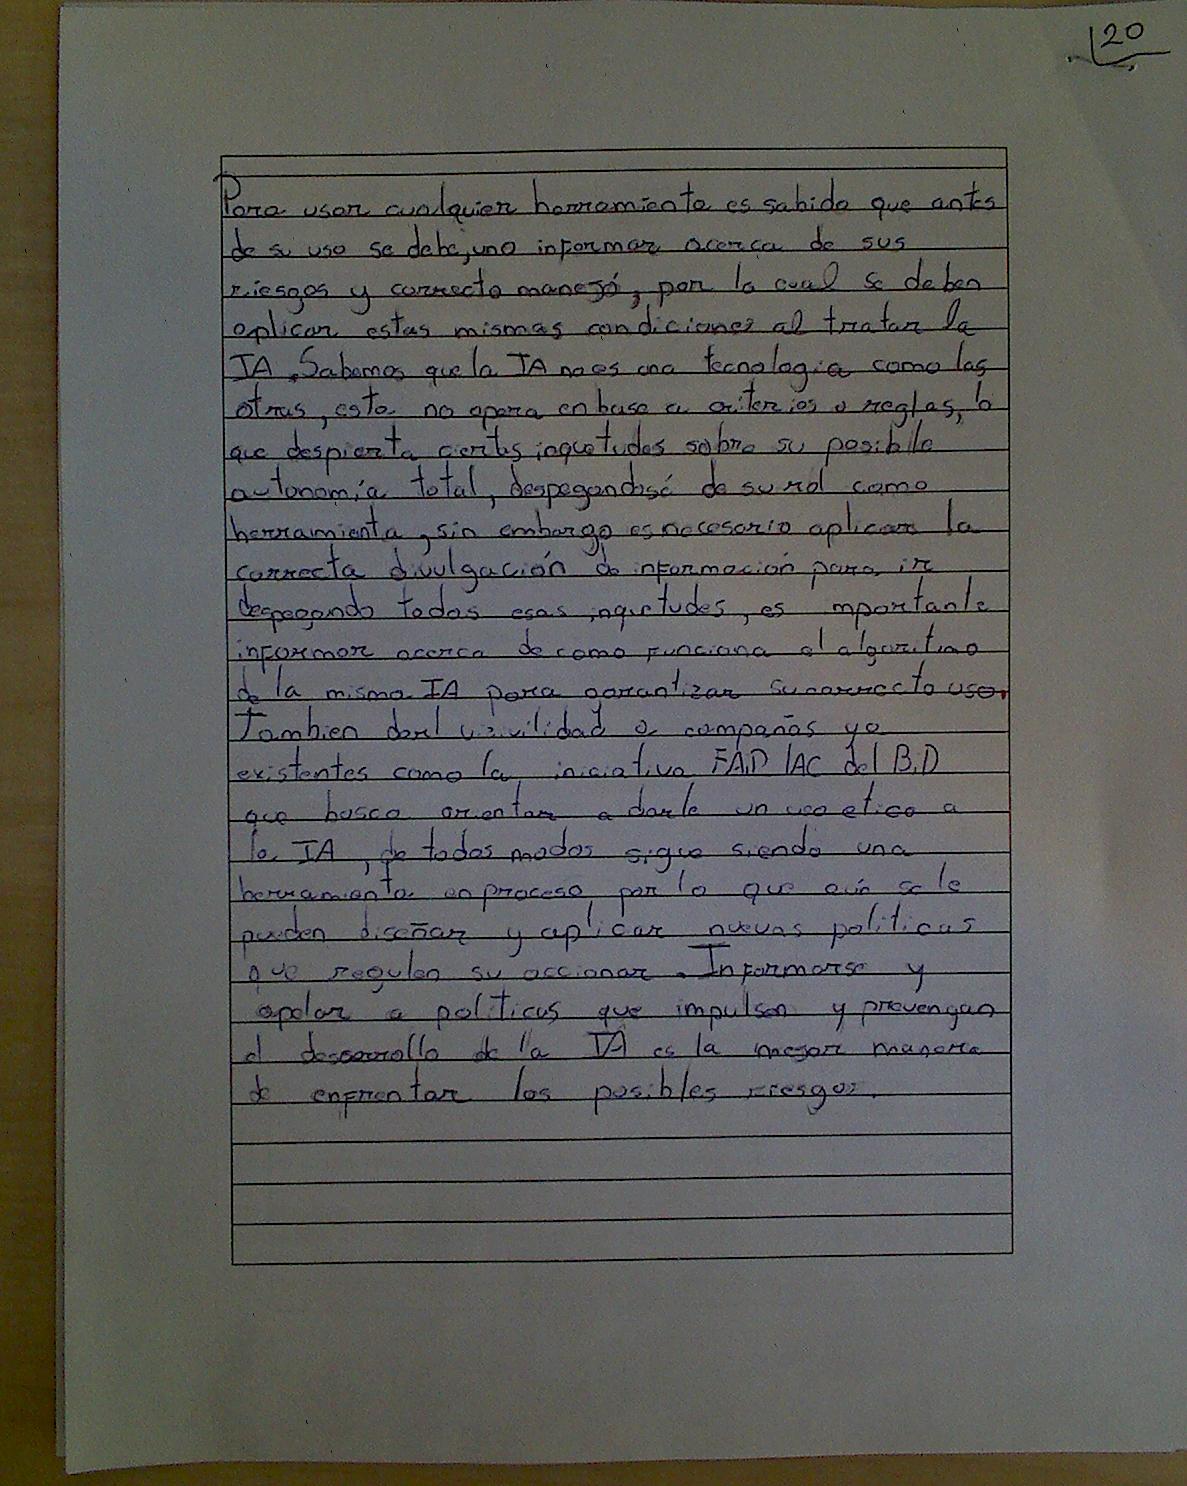 20
Para usar cualquier herramienta es sabido que antes
de su uso se debe, uno informar acerca de sus
riesgos y correcto manejó, por lo cual se deben
aplicar estas mismas condiciones al tratar la
IA. Sabemos que la IA no es una tecnologia como las
otras, esta no opera en base a criterios o reglas, lo
que despierta ciertas inquetudes sobre su posible
autonomía total, despegandosé de su rol como
herramienta, sin embargo es necesario aplicar la
correcta divulgación de información para ir
despegando todas esas inquetudes, es mportante
informar acerca de como funciona el algoritmo
de la misma IA para garantizar su correcto uso.
Tambien darl vizivilidad a compañas ya
existentes como la iniciativa FAIR LAC del B.D
que busca orientar a darle un uso etico a
la IA, de todos modos sigue siendo una
herramienta en proceso, por lo que aún se le
pueden diseñar y aplicar nuevas politicas
que regulen su accionar. Informarse y
apelar a politicas que impulsen y prevengan
el desarrollo de la IA es la mejor manera
de enfrentar los posibles riesgos.